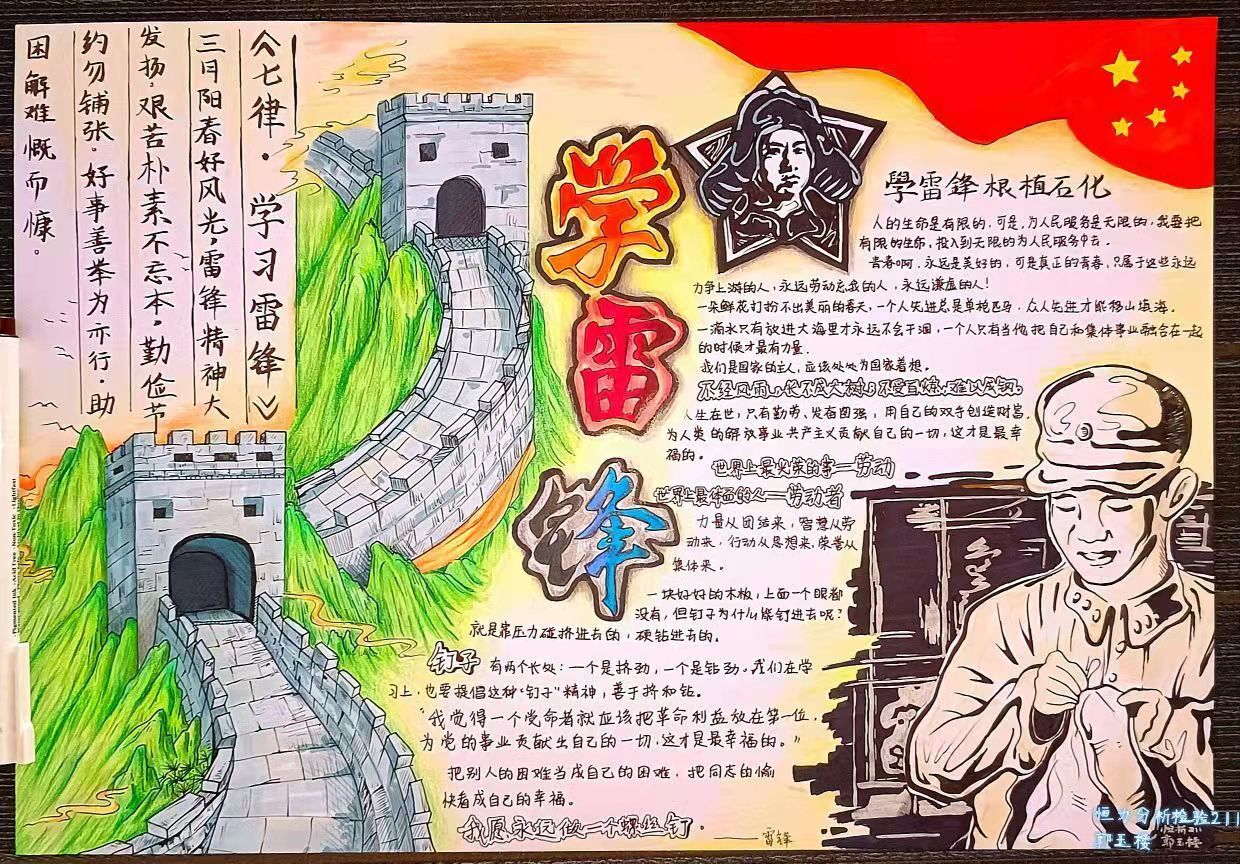 《七律·学习雷锋》
三月阳春好风光,雷锋精神大
发扬。艰苦朴素不忘本,勤俭节
约勿铺张。好事善举为亦行,助
困解难慨而慷。
学雷锋
學雷鋒根植石化
人的生命是有限的,可是,为人民服务是无限的,我要把
有限的生命,投入到无限的为人民服务中去。
青春啊,永远是美好的,可是真正的青春,只属于这些永远
力争上游的人,永远劳动忘我的人,永远谦虚的人!
一朵鲜花打扮不出美丽的春天,一个人先进总是单枪匹马,众人先进才能移山填海。
一滴水只有放进大海里才永远不会干涸,一个人只有当他把自己和集体事业融合在一起
的时候才最有力量.
我们是国家的主人,应该处处为国家着想。
不经风雨,长不成大树;不受百炼,难以成钢。
人生在世,只有勤劳、发奋图强,用自己的双手创造财富,
为人类的解放事业共产主义贡献自己的一切,这才是最幸
福的。
世界上最光荣的事——劳动
世界上最体面的人——劳动者
力量从团结来,智慧从劳
动来,行动从思想来,荣誉从
集体来。
一块好好的木板,上面一个眼都
没有,但钉子为什么能钉进去呢?
就是靠压力碰挤进去的,硬钻进去的。
钉子有两个长处:一个是挤劲,一个是钻劲。我们在学
习上,也要提倡这种"钉子"精神,善于挤和钻。
"我觉得一个党命者就应该把革命利益放在第一位,
为党的事业贡献出自己的一切,这才是最幸福的。"
把别人的困难当成自己的困难,把同志的愉
快看成自己的幸福。
我愿永远做一个螺丝钉.
——雷锋
恒力分析检验211
郭玉楼